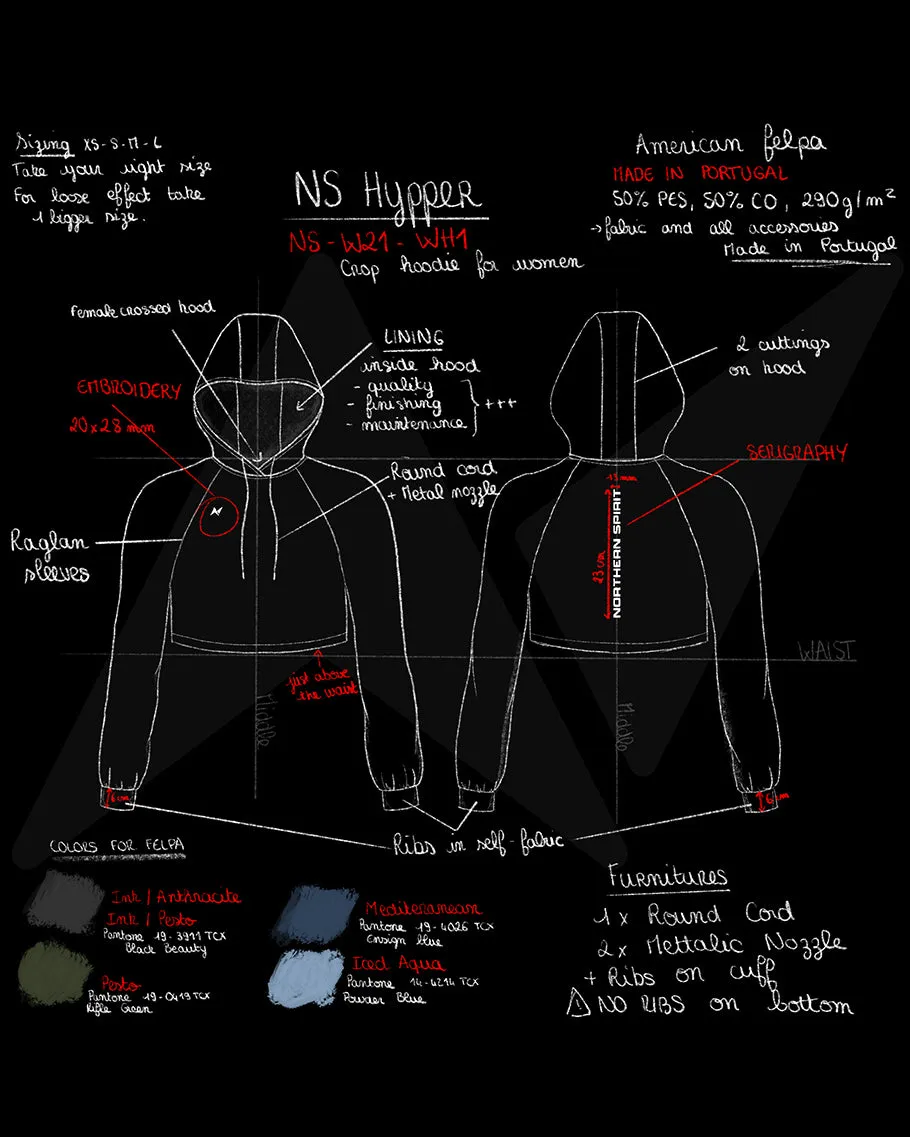 Sizing XS-S-M-L
Take your right size
For loose effect take
1 bigger size.
NS Hypper
NS-W21-WH1
Crop hoodie for women
American felpa
MADE IN PORTUGAL
50% PES, 50% CO, 290g/m²
→ fabric and all accessories
Made in Portugal
Female crossed hood
EMBROIDERY
20x28 mm
LINING
inside hood
- quality
- finishing
- maintenance
+++
Round cord
+ Metal nozzle
Raglan
sleeves
2 cuttings
on hood
SERIGRAPHY
13 mm
23 cm
NORTHERN SPIRIT
WAIST
just above
the waist
Middle
Middle
6 cm
6 cm
Ribs in self-fabric
COLORS FOR FELPA
Ink / Anthracite
Ink / Pesto
Pantone 19-3911 TCX
Black Beauty
Pesto
Pantone 19-0419 TCX
Rifle Green
Mediteranean
Pantone 19-4026 TCX
Ensign blue
Iced Aqua
Pantone 14-4214 TCX
Powder Blue
Furnitures
1x Round Cord
2x Mettalic Nozzle
+ Ribs on cuff
⚠ NO RIBS on bottom